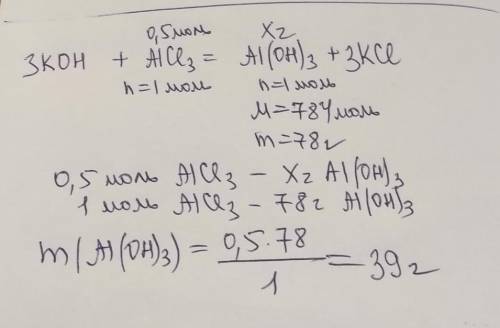 0,5 моль Xг
3KOH + AlCl₃ = Al(OH)₃ + 3KCl
n=1 моль n=1 моль
M=78г/моль
m=78г
0,5 моль AlCl₃ – Xг Al(OH)₃
1 моль AlCl₃ – 78г Al(OH)₃
m(Al(OH)₃) = 0,5·78 / 1 = 39г